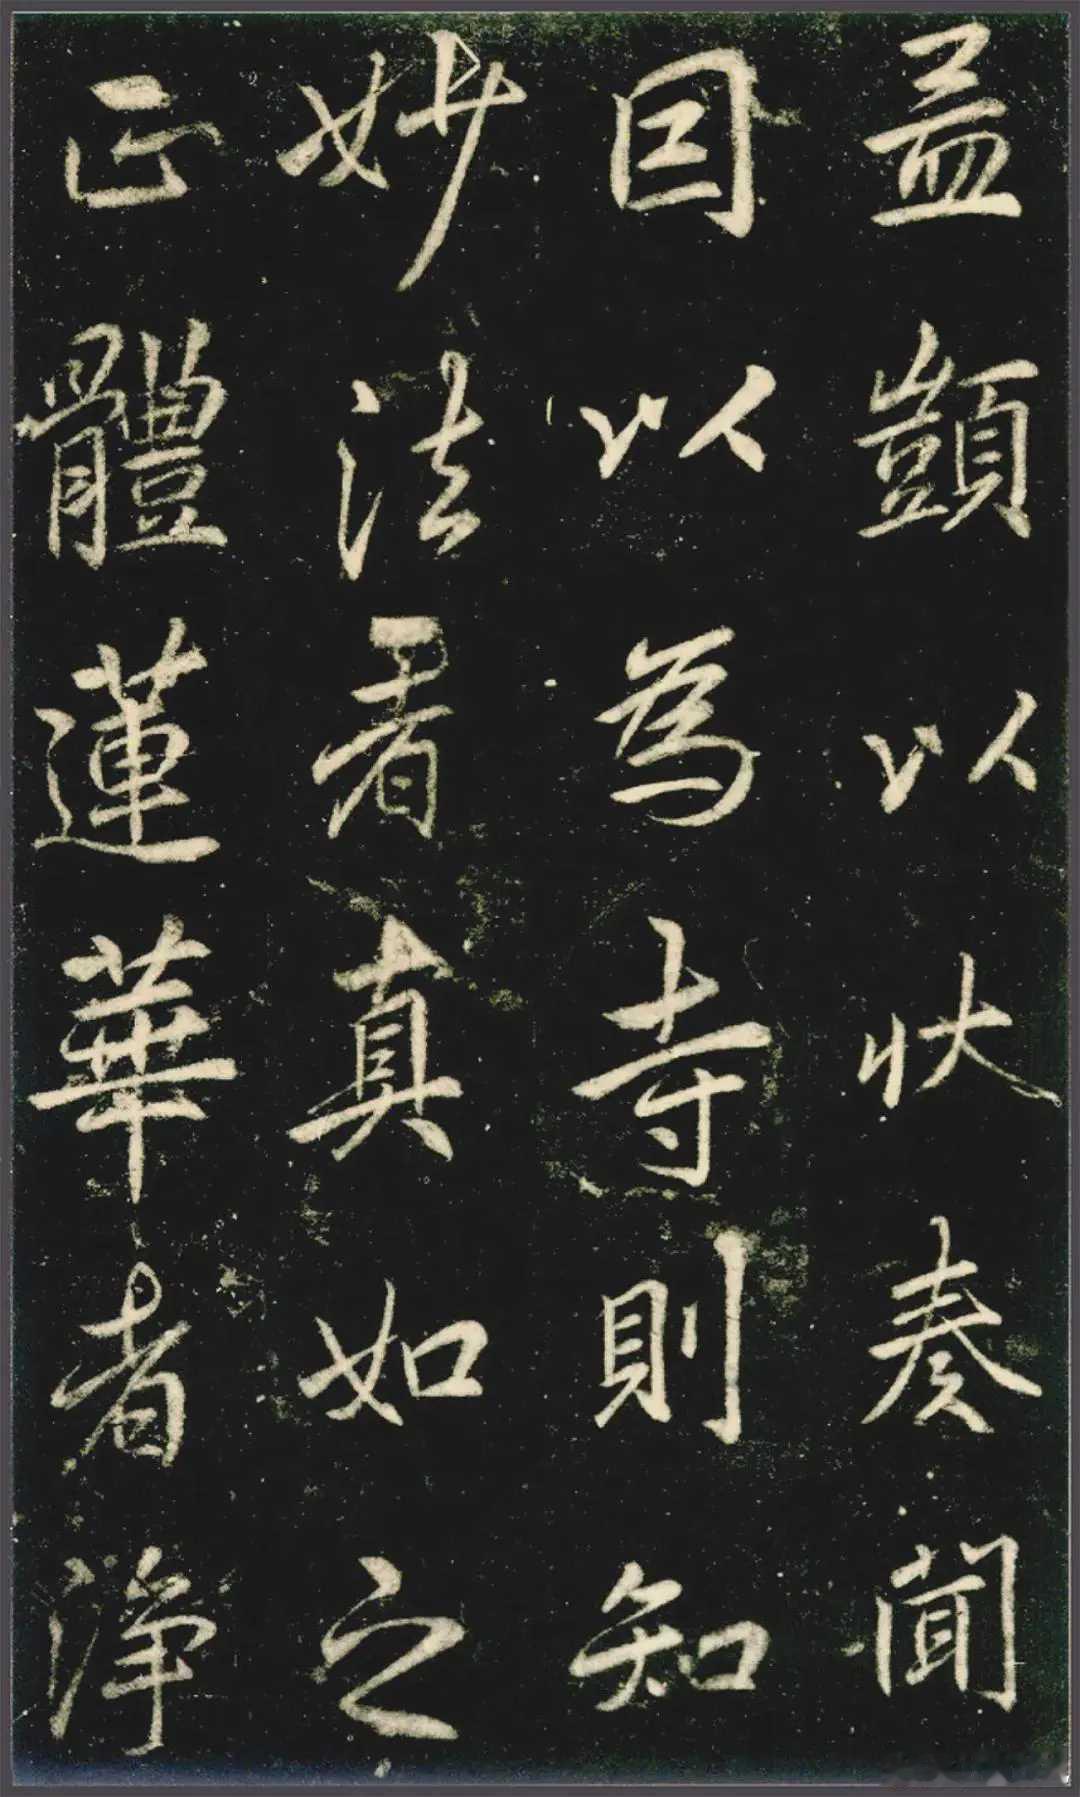 孟顗以状奏聞
因以為寺則知
妙法者真如之
正體蓮華者淨